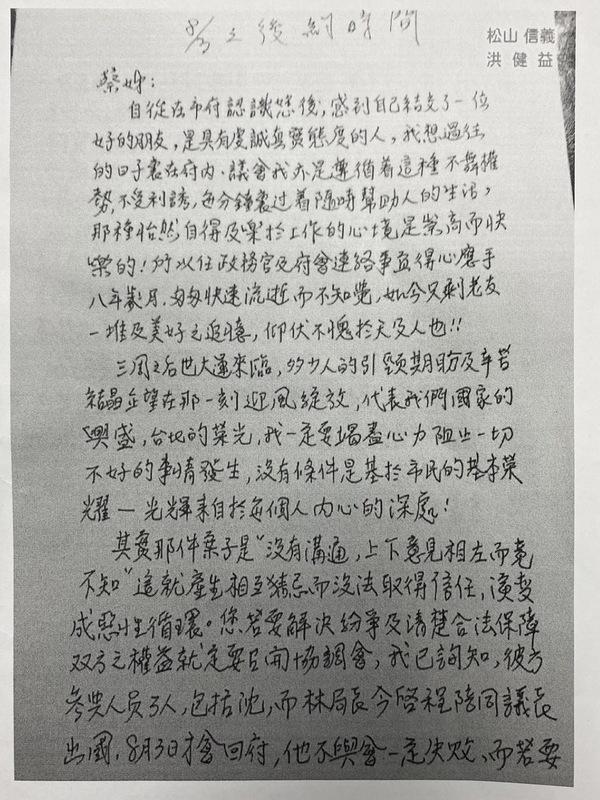 8/3之後 時間
松山 信義
洪 健 益
蔡姊：
自從在市府認識您後，感到自己結交了一位
好的朋友，是具有虔誠與實態度的人，我想過往
的日子裏在府內、議會我亦是遵循着這種不舞權
勢，不受利誘，每分鐘裏过着隨時幫助人的生活，
那種怡然自得及樂於工作的心境是崇高而快
樂的！所以任政務官及府會連絡事宜得心應手
八年歲月，匆匆快速流逝而不知覺，如今只剩老友
一堆及美好之追憶，仰伏不愧於天及人也!!
三周之后世大運來臨，多少人的引頸期盼及辛苦
結晶企望在那一刻迎風綻放，代表我們國家的
興盛，台北的榮光，我一定要竭盡心力阻止一切
不好的事情發生，沒有條件是基於市民的基本榮
耀－光輝来自於每個人內心的深處！
其實那件案子是“沒有溝通，上下意見相左而竟
不知”這就產生相互猜忌而沒法取得信任，演变
成惡性循環。您若要解決紛爭及清楚合法保障
双方之權益就定要召開協調會，我已詢知，彼方
參與人員3人，包括沈，而林局長今啓程陪同議長
出國，8月3日才會回府，他不與會一定失敗、而若要